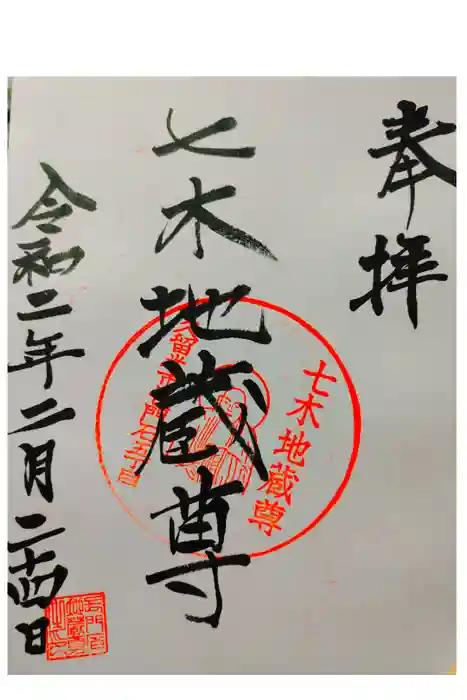 奉拝
七木地蔵尊
七木地蔵尊
令和二年二月二十四日